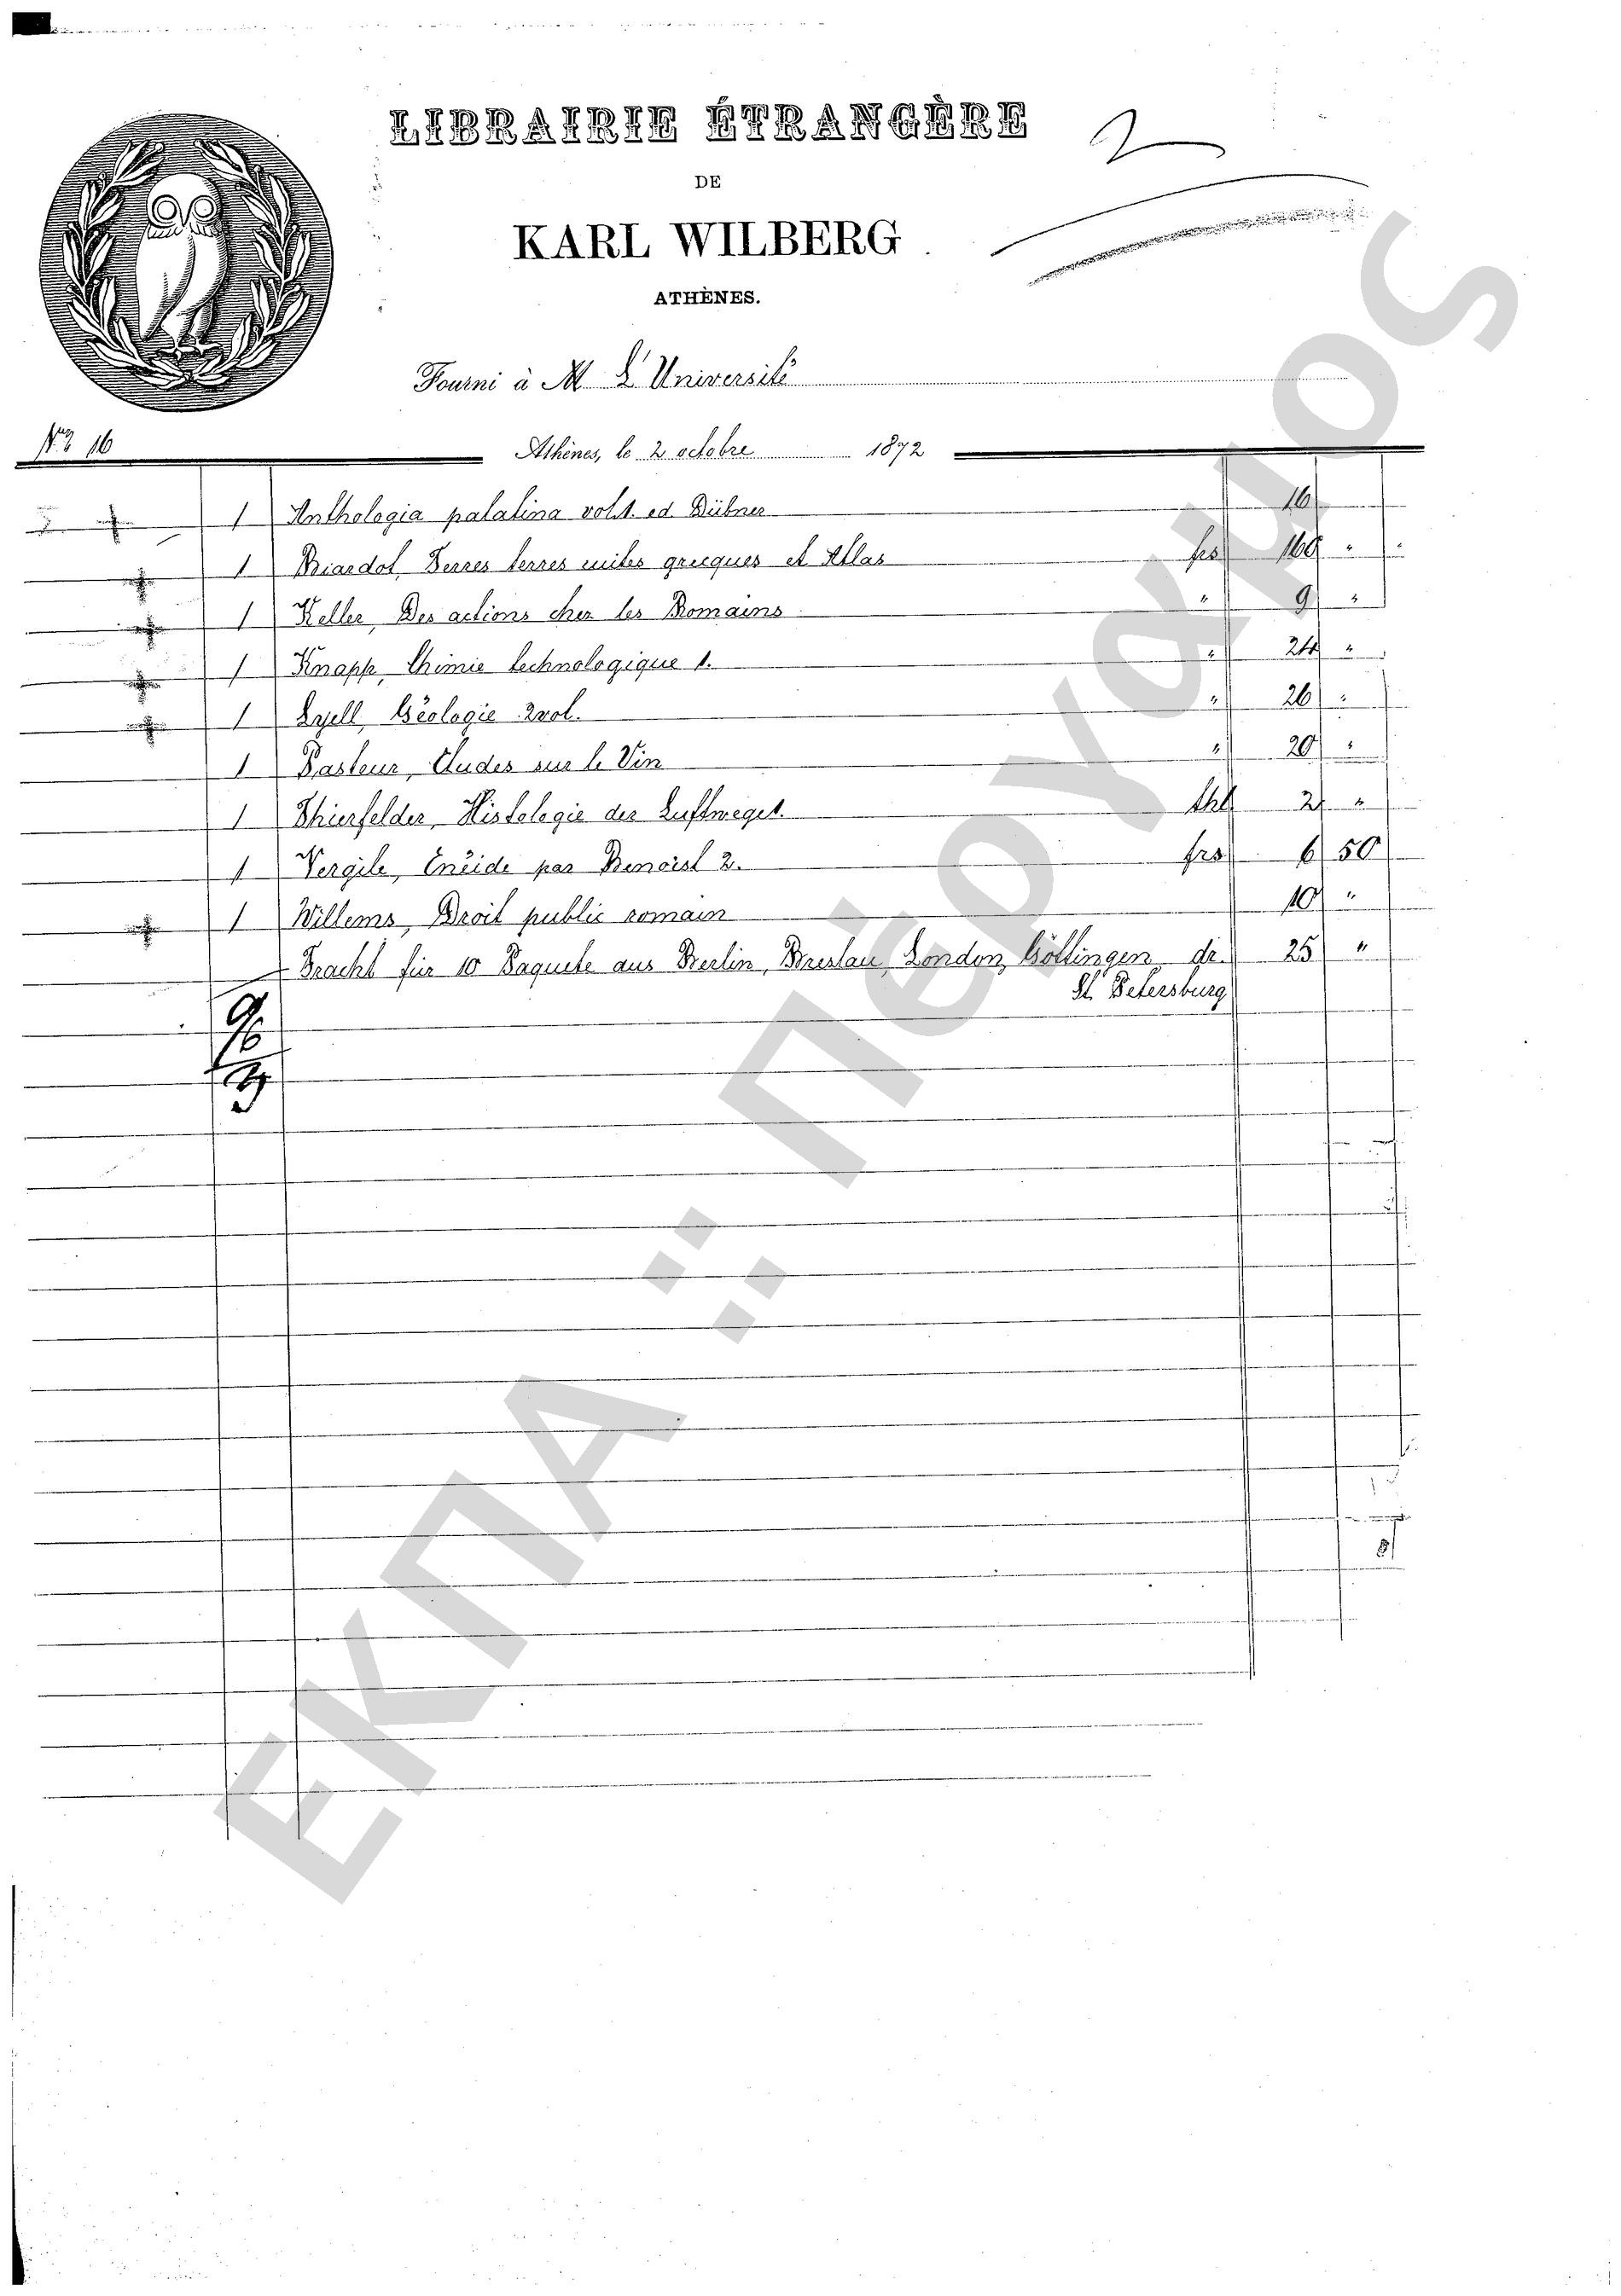 LIBRAIRIE ÉTRANGÈRE
2
DE
KARL WILBERG
ATHÈNES.
Fourni à M L'Université
No 16
Athènes, le 2 octobre 1872
1 Anthologia palatina vol. 1. ed Dübner 16
1 Biardot, Terres cuites grecques et Atlas frs 160 "
1 Keller, Des actions chez les Romains " 9 "
1 Knapp, Chimie technologique 1. " 24 "
1 Lyell, Géologie 2 vol. " 26 "
1 Pasteur, Etudes sur le Vin " 20 "
1 Thierfelder, Histologie der Luftwege 1. thl 2 "
1 Vergile, Enéide par Benoist 2. frs 6 50
1 Willems, Droit public romain 10 "
Fracht für 10 Paquete aus Berlin, Breslau, London, Göttingen dr. 25 "
St. Petersburg
ΕΚΠΑ :: Πέργαμος